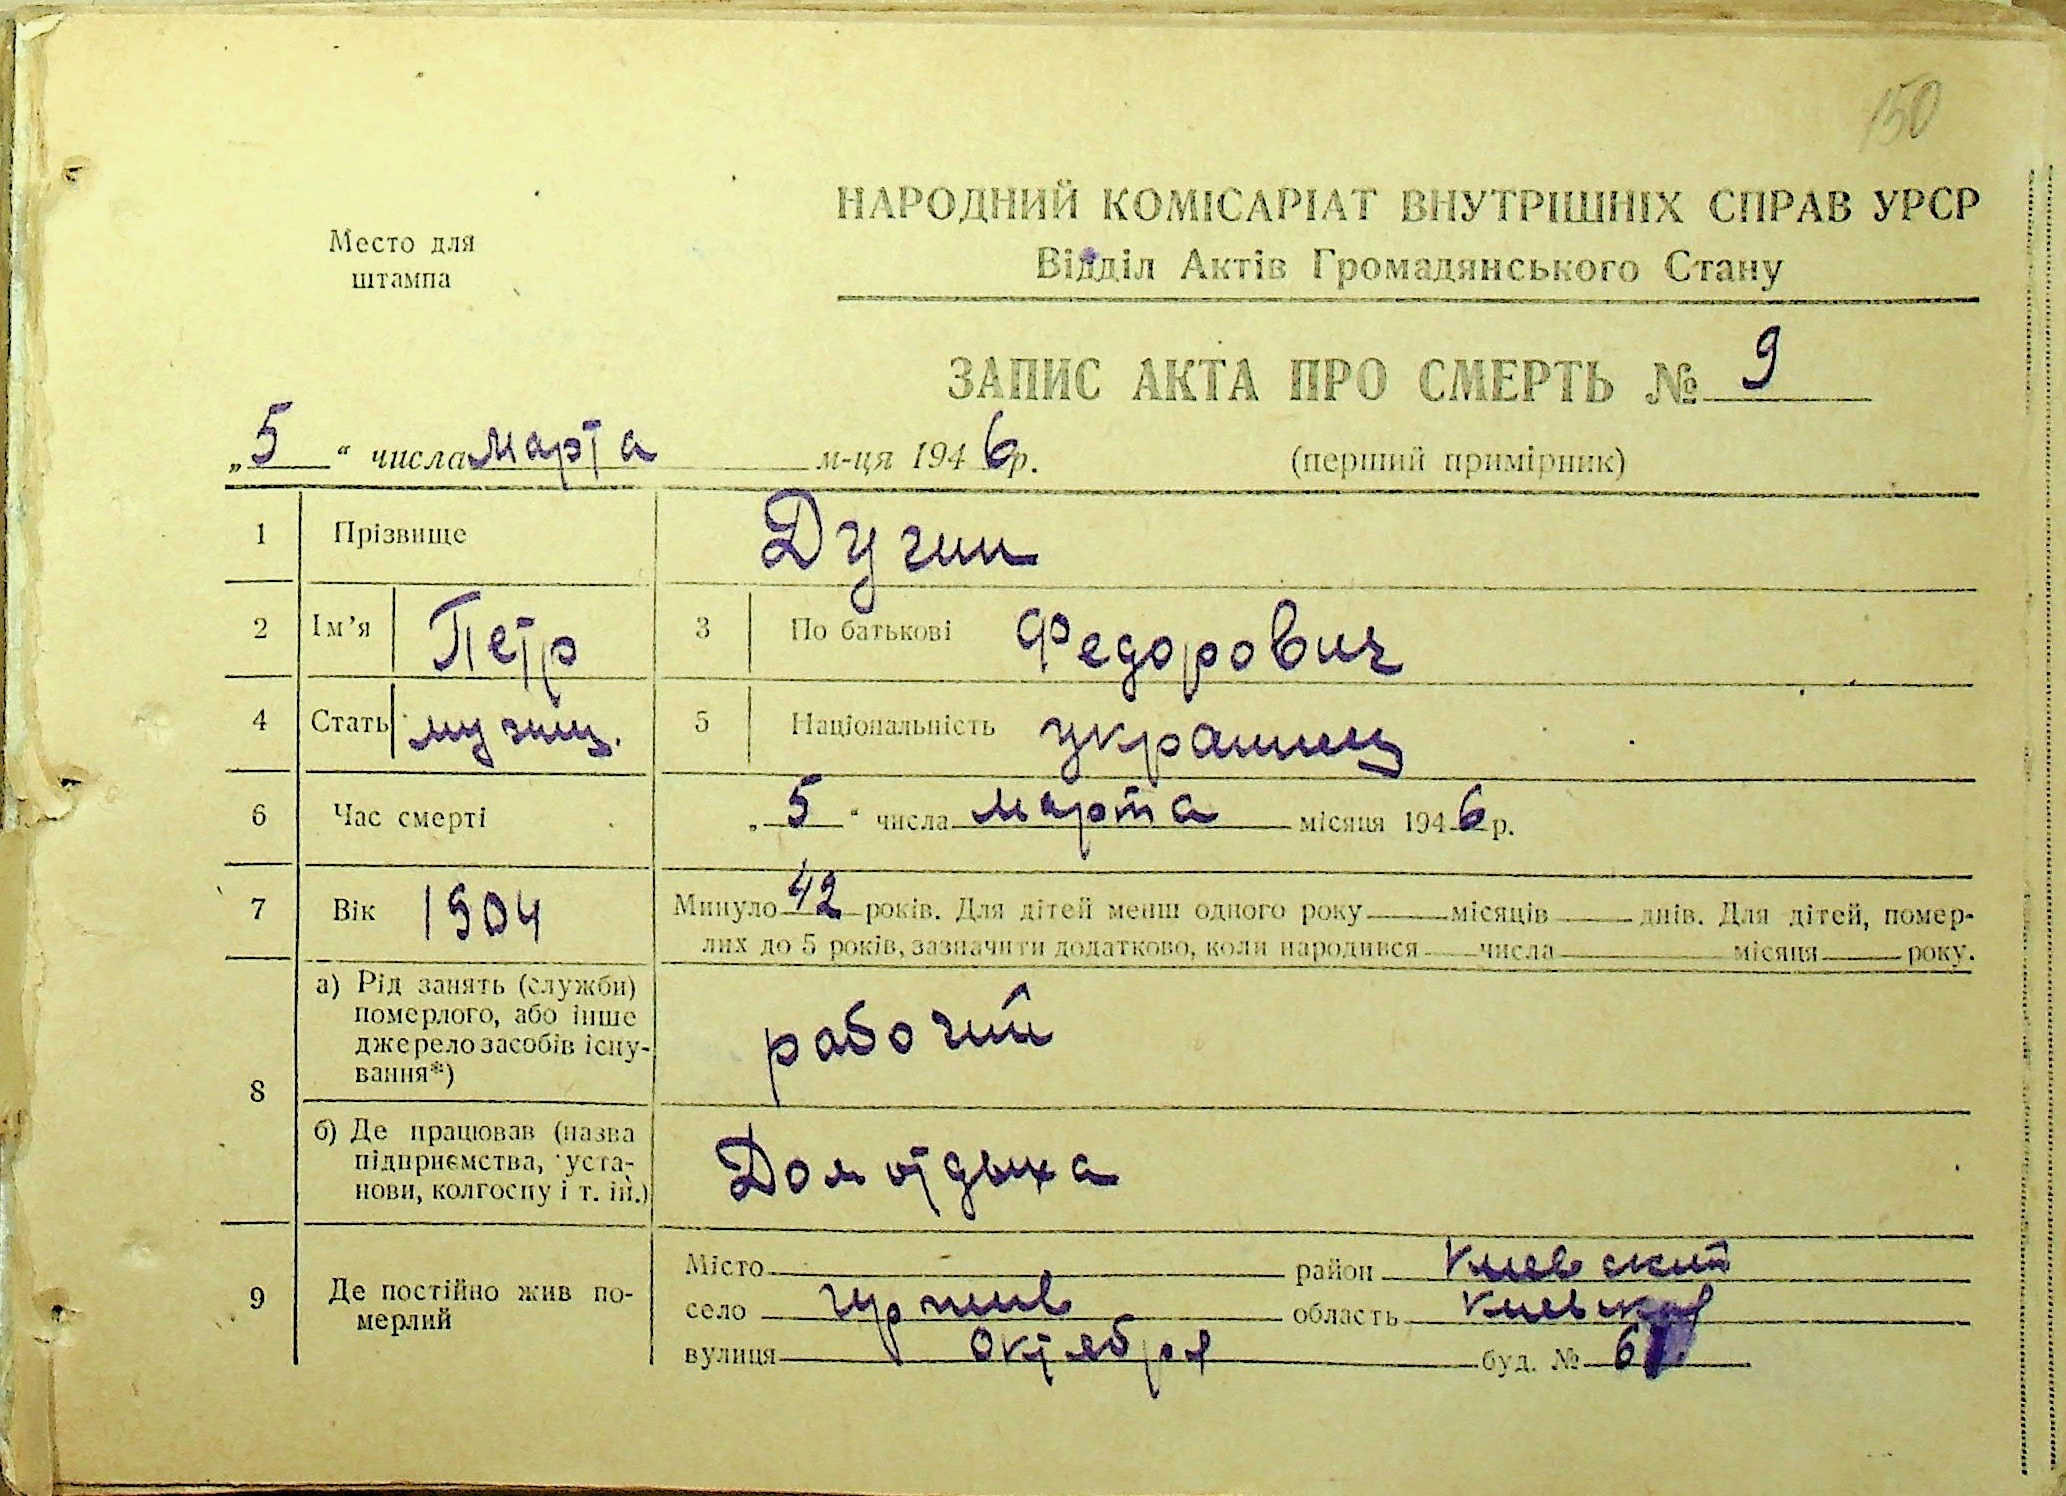 150
Место для
штампа
НАРОДНИЙ КОМІСАРІАТ ВНУТРІШНІХ СПРАВ УРСР
Відділ Актів Громадянського Стану
ЗАПИС АКТА ПРО СМЕРТЬ № 9
„5“ числа марта м-ця 1946 р. (перший примірник)
1 Прізвище Дугин
2 Ім’я Петр 3 По батькові Федорович
4 Стать мужщ. 5 Національність украинец
6 Час смерті „5“ числа марта місяця 1946 р.
7 Вік 1904 Минуло 42 років. Для дітей менш одного року місяців днів. Для дітей, помер-
лих до 5 років, зазначити додатково, коли народився числа місяця року.
8 а) Рід занять (служби)
померлого, або інше
джерело засобів існу-
вання*)
рабочий
б) Де працював (назва
підприємства, уста-
нови, колгоспу і т. ін.)
Дом отдыха
9 Де постійно жив по-
мерлий
Місто район Киевский
село область Киевская
вулиця Октября буд. № 6